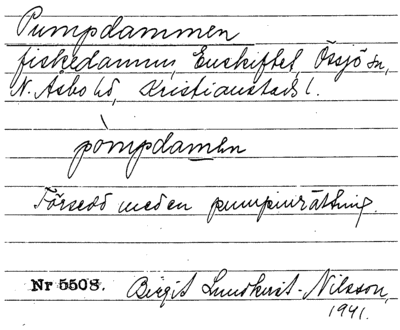 Pumpdammen
fiskedamm, Enskiftet, Össjö sn,
N. Åsbo hd, Kristianstads l.
pòmpdamen
Försedd med en pumpinrättning.
Nr 5508. Birgit Lundkvist-Nilsson,
1941.